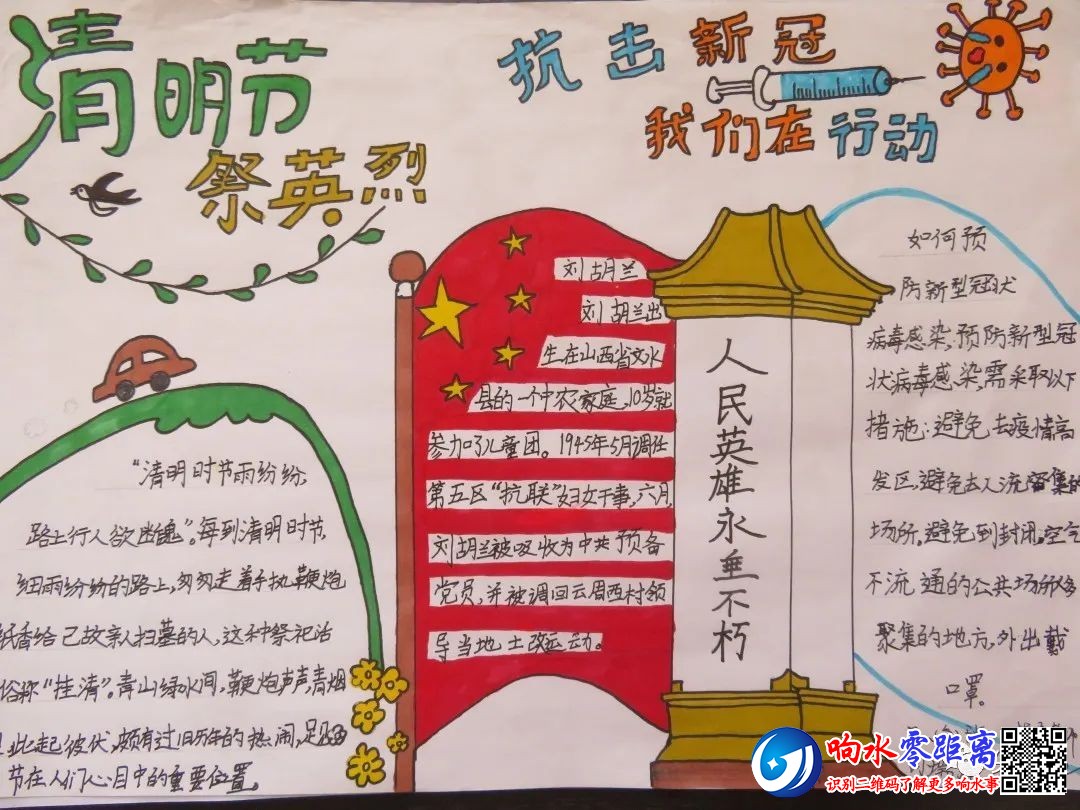 清明节
祭英烈
抗击新冠
我们在行动
"清明时节雨纷纷,
路上行人欲断魂"。每到清明时节
细雨纷纷的路上,匆匆走着手执鞭炮
纸香给已故亲人扫墓的人,这种祭祀活
俗称"挂清"。青山绿水间,鞭炮声声,青烟
此起彼伏,颇有过旧历年的热闹,足
节在人们心目中的重要位置。
刘胡兰
刘胡兰出
生在山西省文水
县的一个中农家庭,10岁就
参加了儿童团。1945年5月调任
第五区"抗联"妇女干事,六月,
刘胡兰被吸收为中共预备
党员,并被调回云周西村领
导当地土改运动。
人民英雄永垂不朽
如何预
防新型冠状
病毒感染,预防新型冠
状病毒感染需采取以下
措施:避免去疫情高
发区,避免去人流密集的
场所。避免到封闭、空气
不流通的公共场所多
聚集的地方,外出戴
口罩。
响水零距离
识别二维码了解更多响水事